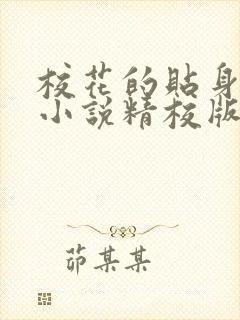 校花的貼身
小說精校版
茆某某